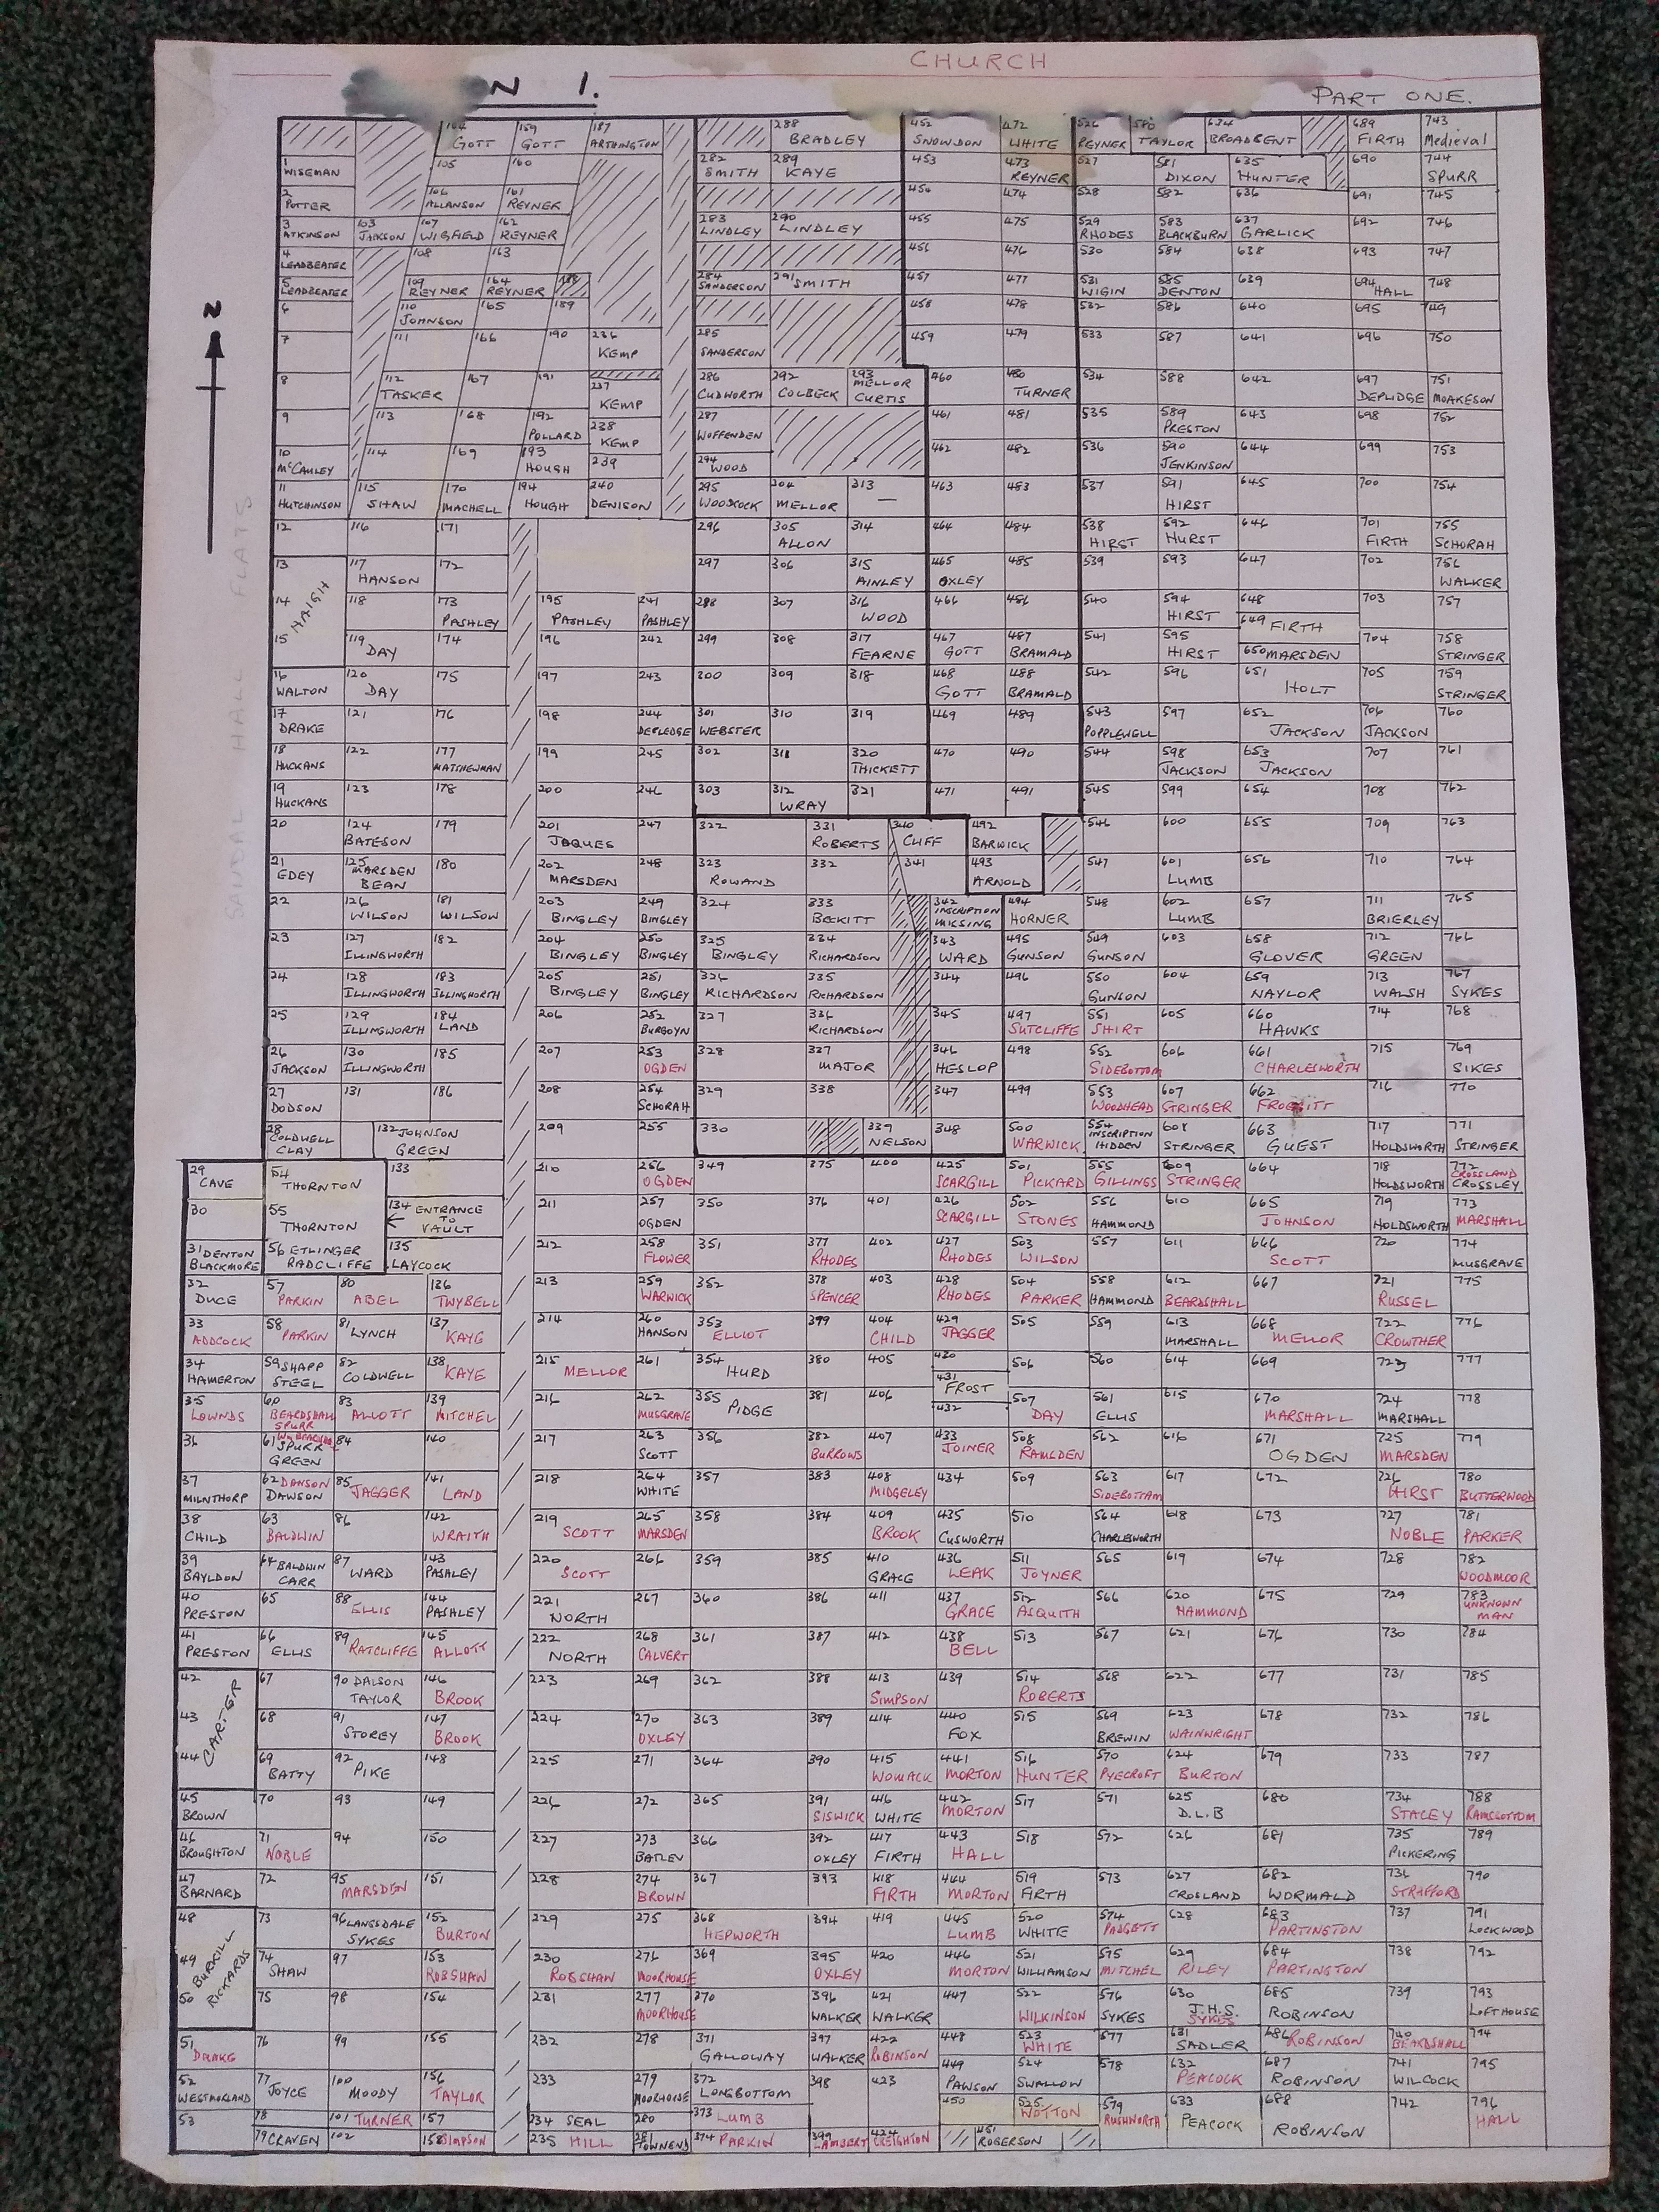 CHURCH
N 1.
PART ONE.
N
SANDAL HALL FLATS
104 GOTT 159 GOTT 187 ARTHINGTON 288 BRADLEY 452 SNOWDON 472 WHITE 526 REYNER 580 TAYLOR 634 BROADBENT 689 FIRTH 743 Medieval
1 WISEMAN 105 160 282 SMITH 289 KAYE 453 473 REYNER 527 581 DIXON 635 HUNTER 690 744 SPURR
2 POTTER 106 ALLANSON 161 REYNER 454 474 528 582 636 691 745
3 ATKINSON 103 JACKSON 107 WIGFIELD 162 REYNER 283 LINDLEY 290 LINDLEY 455 475 529 RHODES 583 BLACKBURN 637 GARLICK 692 746
4 LEADBEATER 108 163 456 476 530 584 638 693 747
5 LEADBEATER 109 REYNER 164 REYNER 188 284 SANDERSON 291 SMITH 457 477 531 WIGIN 585 DENTON 639 694 HALL 748
6 110 JOHNSON 165 189 458 478 532 586 640 695 749
7 111 166 190 236 KEMP 285 SANDERSON 459 479 533 587 641 696 750
8 112 TASKER 167 191 237 KEMP 286 CUDWORTH 292 COLBECK 293 MELLOR CURTIS 460 480 TURNER 534 588 642 697 DEPLIDGE 751 MOAKESON
9 113 168 192 POLLARD 238 KEMP 287 WOFFENDEN 461 481 535 589 PRESTON 643 698 752
10 McCAULEY 114 169 193 HOUGH 239 294 WOOD 462 482 536 590 JENKINSON 644 699 753
11 HUTCHINSON 115 SHAW 170 MACHELL 194 HOUGH 240 DENISON 295 WOODCOCK 304 MELLOR 313 — 463 483 537 591 HIRST 645 700 754
12 116 171 296 305 ALLON 314 464 484 538 HIRST 592 HURST 646 701 FIRTH 755 SCHORAH
13 117 HANSON 172 297 306 315 AINLEY 465 OXLEY 485 539 593 647 702 756 WALKER
14 HAIGH 118 173 PASHLEY 195 PASHLEY 241 PASHLEY 298 307 316 WOOD 466 486 540 594 HIRST 648 649 FIRTH 703 757
15 119 DAY 174 196 242 299 308 317 FEARNE 467 GOTT 487 BRAMALD 541 595 HIRST 650 MARSDEN 704 758 STRINGER
16 WALTON 120 DAY 175 197 243 300 309 318 468 GOTT 488 BRAMALD 542 596 651 HOLT 705 759 STRINGER
17 DRAKE 121 176 198 244 DEPLEDGE 301 WEBSTER 310 319 469 489 543 POPPLEWELL 597 652 JACKSON 706 JACKSON 760
18 HUCKANS 122 177 MATCHEWMAN 199 245 302 311 320 THICKETT 470 490 544 598 JACKSON 653 JACKSON 707 761
19 HUCKANS 123 178 200 246 303 312 WRAY 321 471 491 545 599 654 708 762
20 124 BATESON 179 201 JAQUES 247 322 331 ROBERTS 340 CLIFF 492 BARWICK 546 600 655 709 763
21 EDEY 125 MARSDEN BEAN 180 202 MARSDEN 248 323 ROWAND 332 341 493 ARNOLD 547 601 LUMB 656 710 764
22 126 WILSON 181 WILSON 203 BINGLEY 249 BINGLEY 324 333 BECKITT 342 INSCRIPTION MISSING 494 HORNER 548 602 LUMB 657 711 BRIERLEY 765
23 127 ILLINGWORTH 182 204 BINGLEY 250 BINGLEY 325 BINGLEY 334 RICHARDSON 343 WARD 495 GUNSON 549 GUNSON 603 658 GLOVER 712 GREEN 766
24 128 ILLINGWORTH 183 ILLINGWORTH 205 BINGLEY 251 BINGLEY 326 RICHARDSON 335 RICHARDSON 344 496 550 GUNSON 604 659 NAYLOR 713 WALSH 767 SYKES
25 129 ILLINGWORTH 184 LAND 206 252 BURGOYN 327 336 RICHARDSON 345 497 SUTCLIFFE 551 SHIRT 605 660 HAWKS 714 768
26 JACKSON 130 ILLINGWORTH 185 207 253 OGDEN 328 337 MAJOR 346 HESLOP 498 552 SIDEBOTTOM 606 661 CHARLESWORTH 715 769 SIKES
27 DODSON 131 186 208 254 SCHORAH 329 338 347 499 553 WOODHEAD 607 STRINGER 662 FROGGITT 716 770
28 COLDWELL CLAY 132 JOHNSON GREEN 209 255 330 339 NELSON 348 500 WARWICK 554 INSCRIPTION HIDDEN 608 STRINGER 663 GUEST 717 HOLDSWORTH 771 STRINGER
29 CAVE 54 THORNTON 133 210 256 OGDEN 349 375 400 425 SCARGILL 501 PICKARD 555 GILLINGS 609 STRINGER 664 718 HOLDSWORTH 772 CROSSLAND CROSSLEY
30 55 THORNTON 134 ENTRANCE TO VAULT 211 257 OGDEN 350 376 401 426 SCARGILL 502 STONES 556 HAMMOND 610 665 JOHNSON 719 HOLDSWORTH 773 MARSHALL
31 DENTON BLACKMORE 56 ETLINGER RADCLIFFE 135 LAYCOCK 212 258 FLOWER 351 377 RHODES 402 427 RHODES 503 WILSON 557 611 666 SCOTT 720 774 MUSGRAVE
32 DUCE 57 PARKIN 80 ABEL 136 TWYBELL 213 259 WARWICK 352 378 SPENCER 403 428 RHODES 504 PARKER 558 HAMMOND 612 BEARDSHALL 667 721 RUSSEL 775
33 ADDCOCK 58 PARKIN 81 LYNCH 137 KAYG 214 260 HANSON 353 ELLIOT 399 404 CHILD 429 JAGGER 505 559 613 MARSHALL 668 MELLOR 722 CROWTHER 776
34 HAMERTON 59 SHAPP STEEL 82 COLDWELL 138 KAYE 215 MELLOR 261 354 HURD 380 405 430 506 560 614 669 723 777
35 LOWNDS 60 BEARDSHALL SPURR 83 ALLOTT 139 MITCHEL 216 262 MUSGRAVE 355 PIDGE 381 406 431 FROST 432 507 DAY 561 ELLIS 615 670 MARSHALL 724 MARSHALL 778
36 61 SPURR GREEN 84 140 217 263 SCOTT 356 382 BURROWS 407 433 JOINER 508 RAMSDEN 562 616 671 OGDEN 725 MARSDEN 779
37 MILNTHORP 62 DAWSON DAWSON 85 JAGGER 141 LAND 218 264 WHITE 357 383 408 MIDGELEY 434 509 563 SIDEBOTTAM 617 672 726 HIRST 780 BUTTERWOOD
38 CHILD 63 BALDWIN 86 142 WRAITH 219 SCOTT 265 MARSDEN 358 384 409 BROOK 435 CUSWORTH 510 564 CHARLESWORTH 618 673 727 NOBLE 781 PARKER
39 BAYLDON 64 BALDWIN CARR 87 WARD 143 PASHLEY 220 SCOTT 266 359 385 410 GRACE 436 LEAK 511 JOYNER 565 619 674 728 782 WOODMOOR
40 PRESTON 65 88 ELLIS 144 PASHLEY 221 NORTH 267 360 386 411 437 GRACE 512 ASQUITH 566 620 HAMMOND 675 729 783 UNKNOWN MAN
41 PRESTON 66 ELLIS 89 RATCLIFFE 145 ALLOTT 222 NORTH 268 CALVERT 361 387 412 438 BELL 513 567 621 676 730 784
42 67 90 DALSON TAYLOR 146 BROOK 223 269 362 388 413 SIMPSON 439 514 ROBERTS 568 622 677 731 785
43 CARTER 68 91 STOREY 147 BROOK 224 270 OXLEY 363 389 414 440 FOX 515 569 BREWIN 623 WAINWRIGHT 678 732 786
44 69 BATTY 92 PIKE 148 225 271 364 390 415 WOMACK 441 MORTON 516 HUNTER 570 PYECROFT 624 BURTON 679 733 787
45 BROWN 70 93 149 226 272 365 391 SISWICK 416 WHITE 442 MORTON 517 571 625 D.L.B 680 734 STACEY 788 RAMSBOTTOM
46 BROUGHTON 71 NOBLE 94 150 227 273 BATLEY 366 392 OXLEY 417 FIRTH 443 HALL 518 572 626 681 735 PICKERING 789
47 BARNARD 72 95 MARSDEN 151 228 274 BROWN 367 393 418 FIRTH 444 MORTON 519 FIRTH 573 627 CROSLAND 682 WORMALD 736 STRAFFORD 790
48 73 96 LANGSDALE SYKES 152 BURTON 229 275 368 HEPWORTH 394 419 445 LUMB 520 WHITE 574 PADGETT 628 683 PARTINGTON 737 791 LOCKWOOD
49 BURKILL RICKARDS 74 SHAW 97 153 ROBSHAW 230 ROBSHAW 276 MOORHOUSE 369 395 OXLEY 420 446 MORTON 521 WILLIAMSON 575 MITCHEL 629 RILEY 684 PARTINGTON 738 792
50 75 98 154 231 277 MOORHOUSE 370 396 WALKER 421 WALKER 447 522 WILKINSON 576 SYKES 630 J.H.S. SYKES 685 ROBINSON 739 793 LOFTHOUSE
51 DRAKE 76 99 155 232 278 371 GALLOWAY 397 WALKER 422 ROBINSON 448 523 WHITE 577 631 SADLER 686 ROBINSON 740 BEARDSHALL 794
52 WESTMORLAND 77 JOYCE 100 MOODY 156 TAYLOR 233 279 MOORHOUSE 372 LONGBOTTOM 398 423 449 PAWSON 524 SWALLOW 578 632 PEACOCK 687 ROBINSON 741 WILCOCK 795
53 78 101 TURNER 157 234 SEAL 280 373 LUMB 450 525 WOTTON 579 RUSHWORTH 633 PEACOCK 688 ROBINSON 742 796 HALL
79 CRAVEN 102 158 SIMPSON 235 HILL 281 TOWNEND 374 PARKIN 399 LAMBERT 424 CREIGHTON 451 ROGERSON